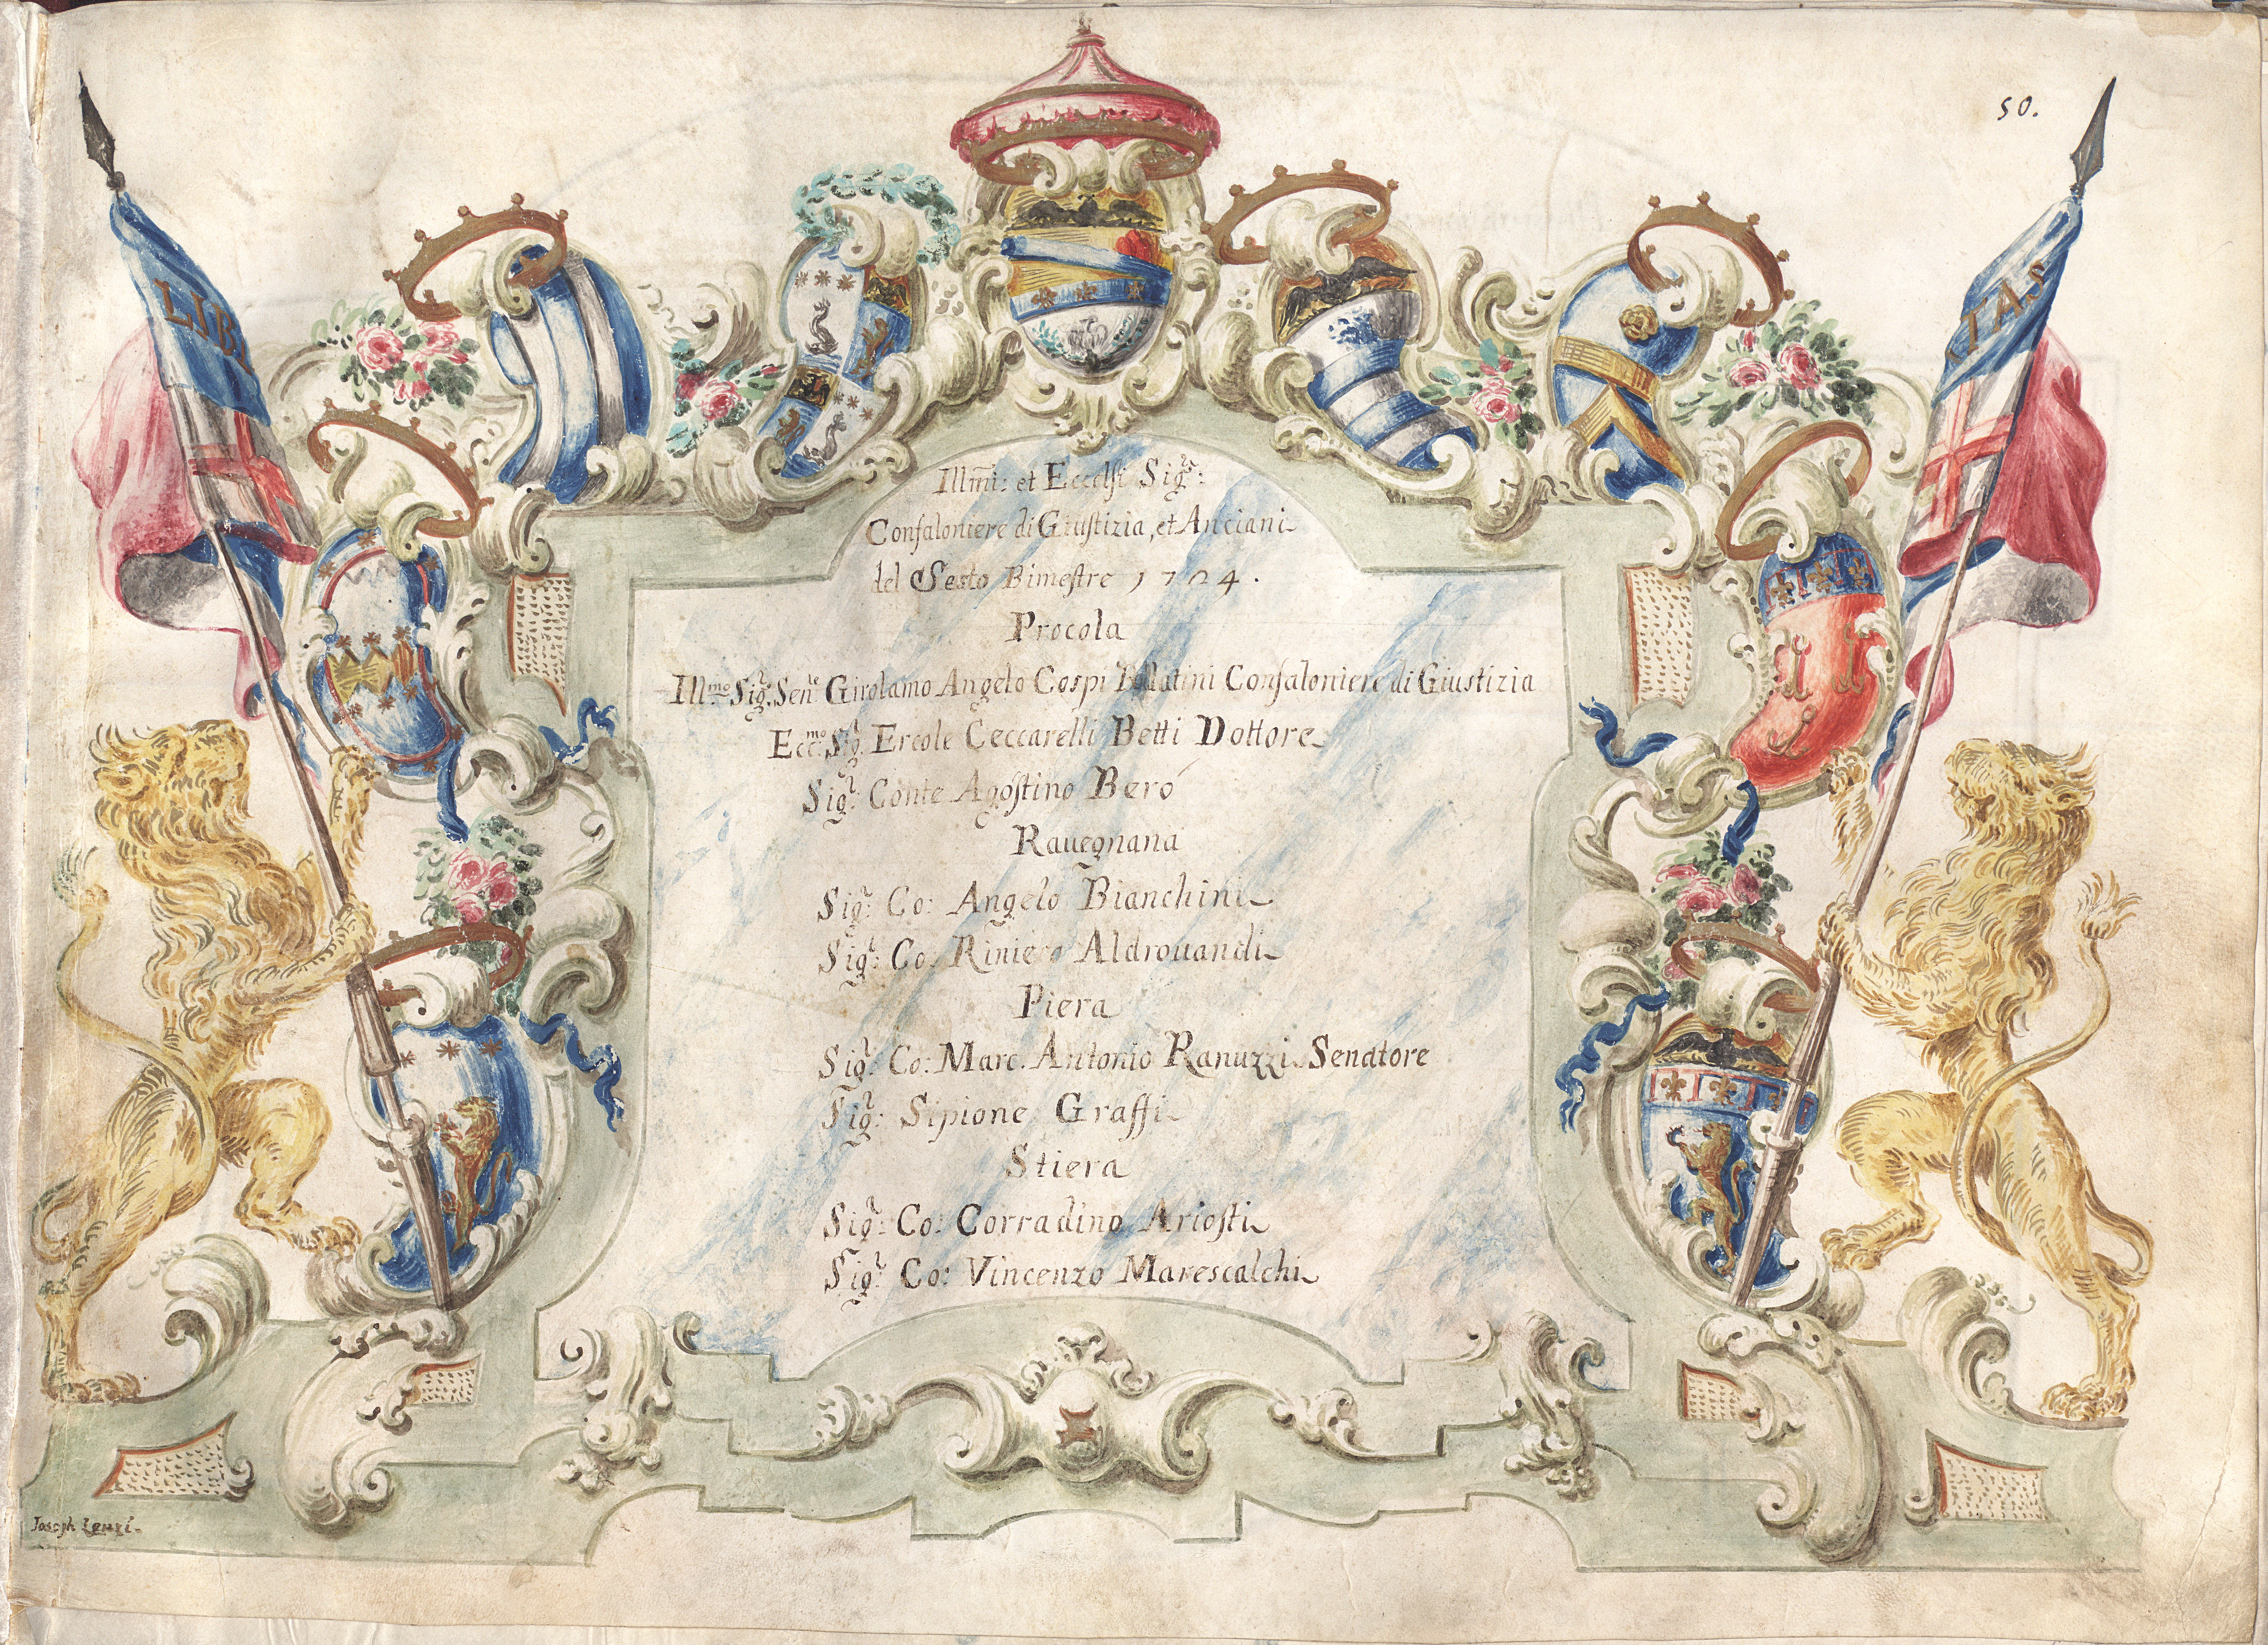 50.
LIBE
RTAS
Illmi: et Eccelsi Sigri:
Confaloniere di Giustizia, et Anciani
del Sesto Bimestre 1704.
Procola
Illmo Sigr: Senre Girolamo Angelo Cospi Ballatini Confaloniere di Giustizia
Eccmo: Sigr Ercole Ceccarelli Betti Dottore
Sigr: Conte Agostino Berò
Rauegnana
Sigr: Co: Angelo Bianchini
Sigr: Co. Riniero Aldrouandi
Piera
Sigr: Co: Marc. Antonio Ranuzzi Senatore
Sigr: Sipione Graffi
Stiera
Sigr: Co: Corradino Ariosti
Sigr: Co: Vincenzo Marescalchi
Joseph Lenzi.